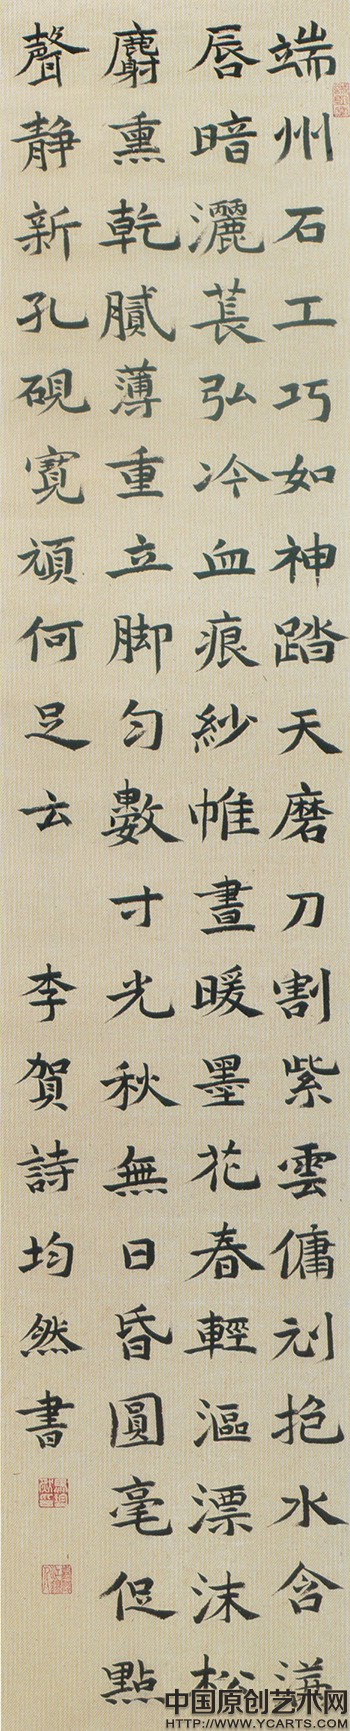 端州石工巧如神踏天磨刀割紫雲傭刓抱水含滿
唇暗灑萇弘冷血痕紗帷晝暖墨花春輕漚漂沫松
麝熏乾膩薄重立脚匀數寸光秋無日昏圓毫促點
聲静新孔硯寬頑何足云 李賀詩均然書
中国原创艺术网
HTTP://WWW.YCARTS.COM